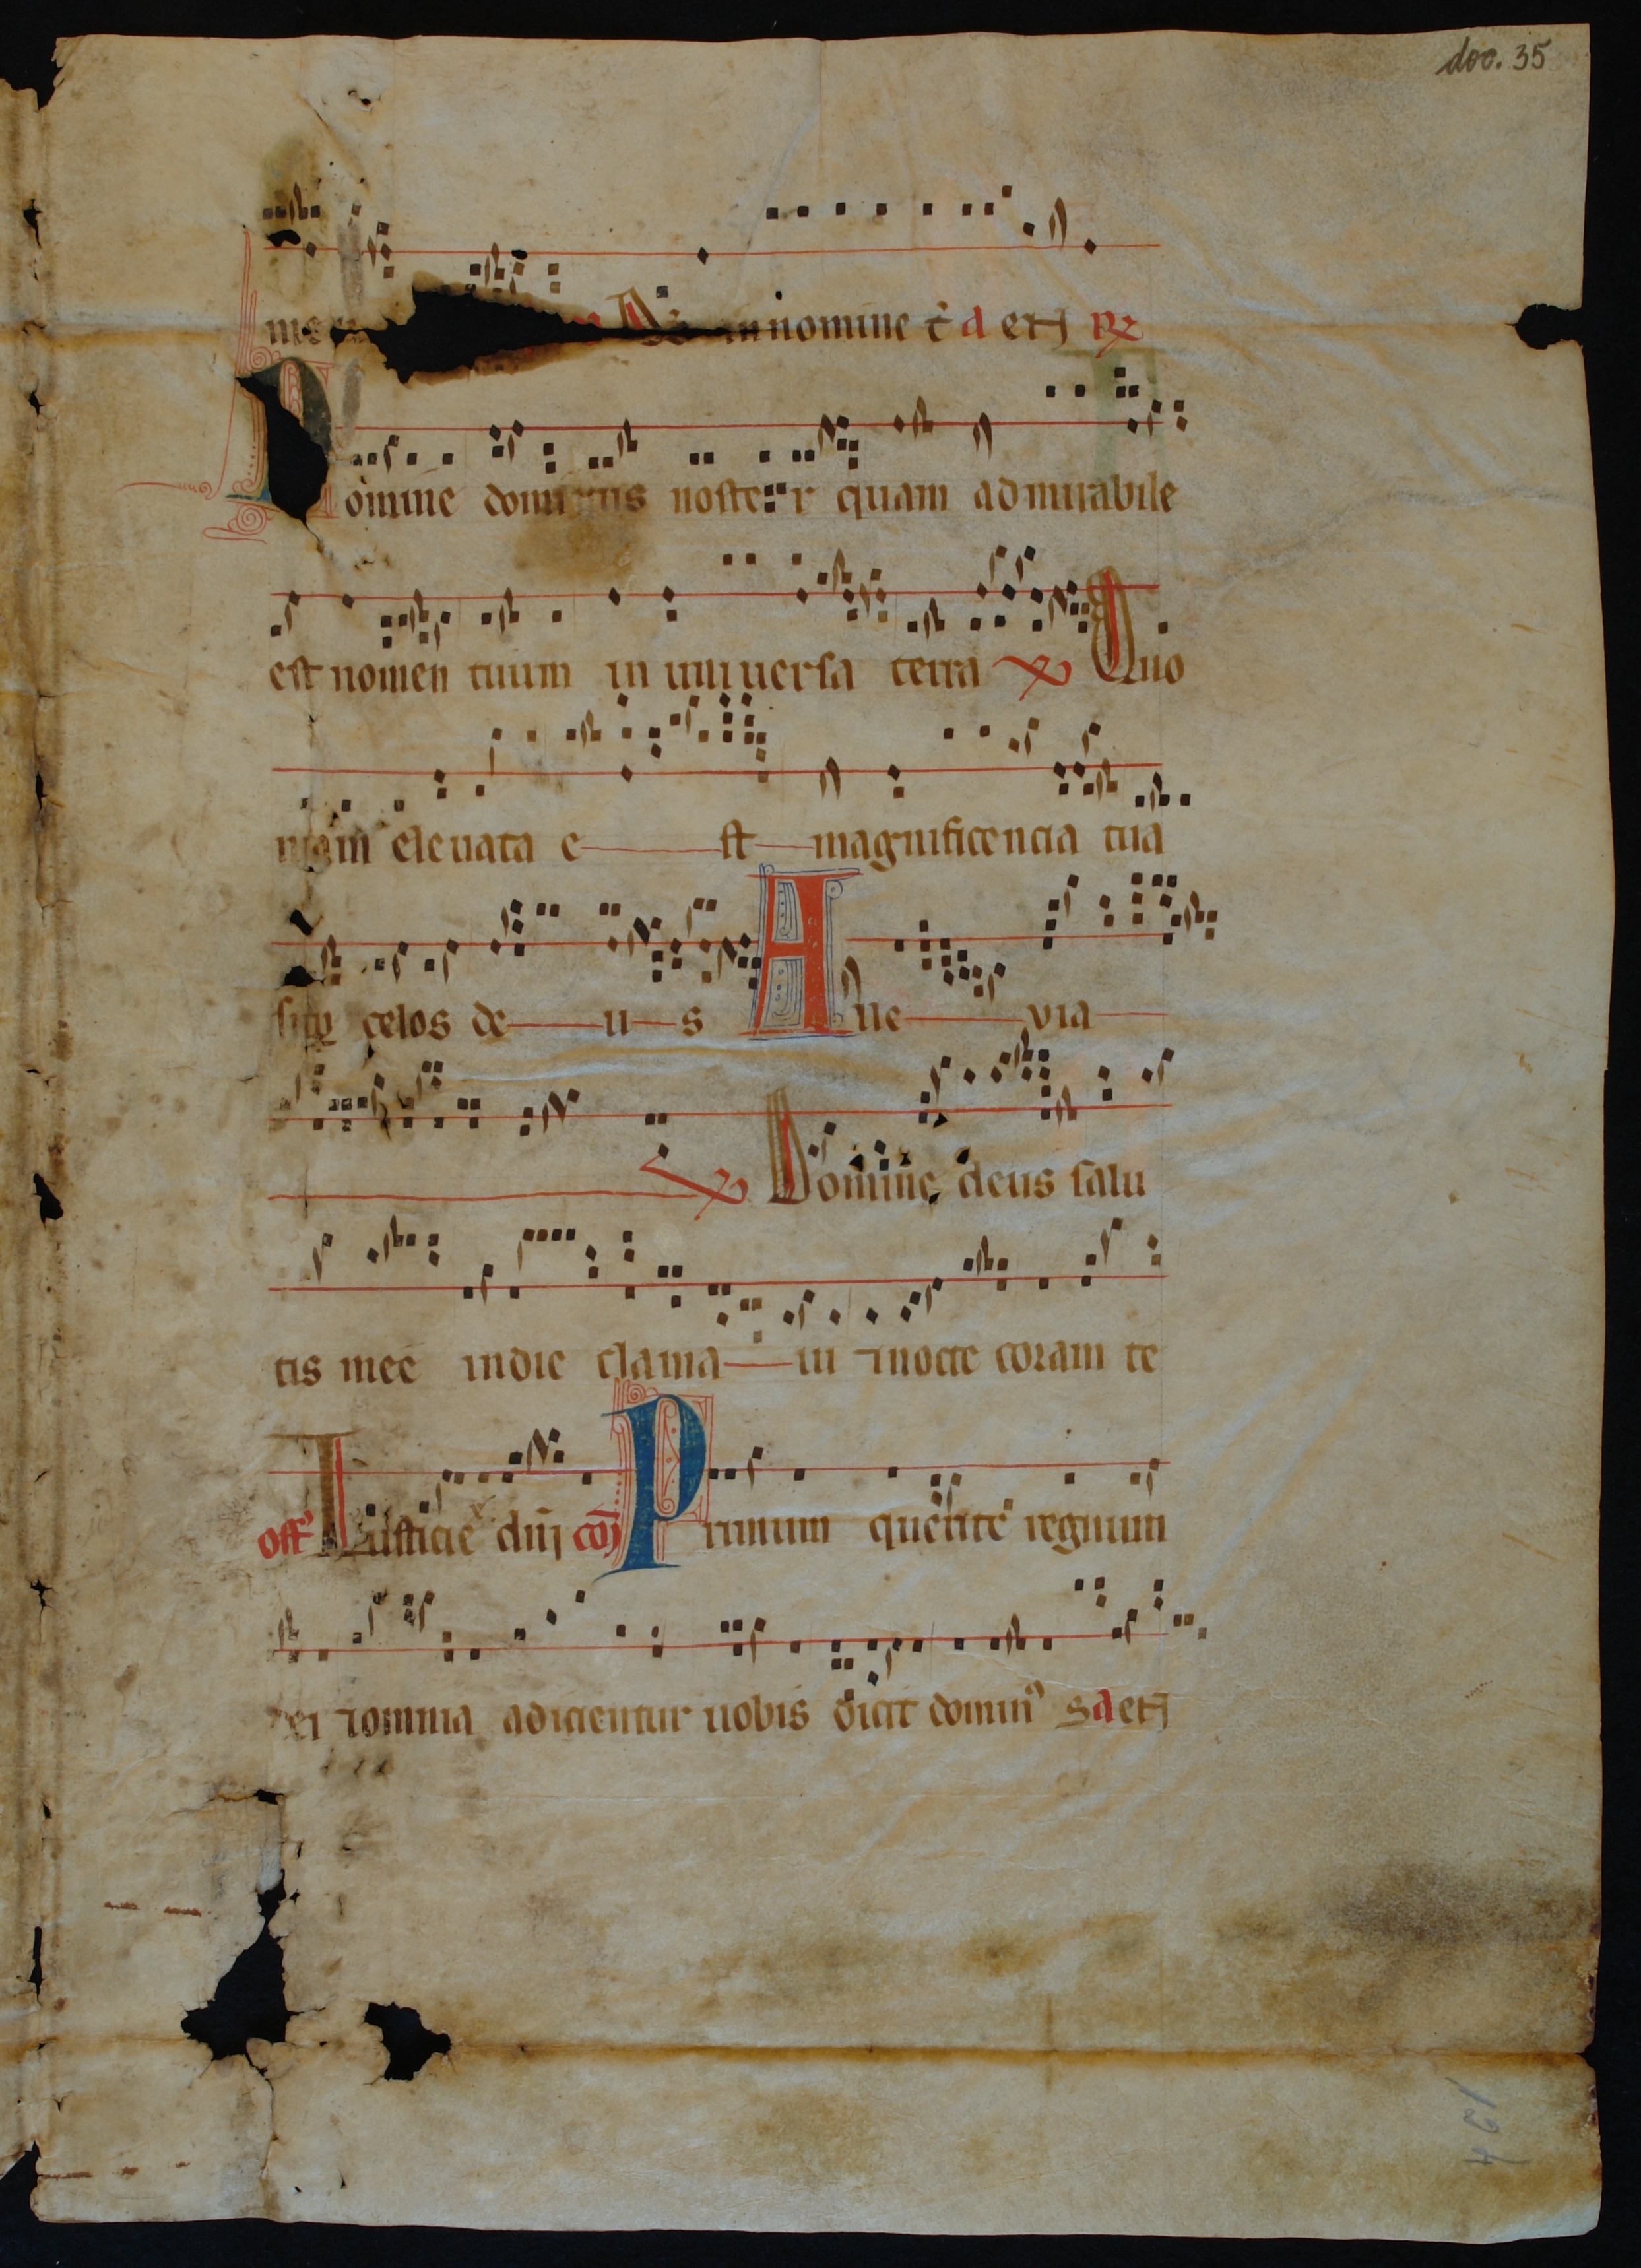 doc. 35
in nomine t̄ a et̄ R
Domine dominus noster quam admirabile
est nomen tuum in uniuersa terra V Quo
niam eleuata e st magnificencia tua
sup celos de u s A lle via
V Domine deus salu
tis mee in die clama ui ⁊ nocte coram te
off' Iusticie dñi cō Primum querite regnum
dei ⁊ omnia adicientur uobis dicit domin⁹ s a et̄
194